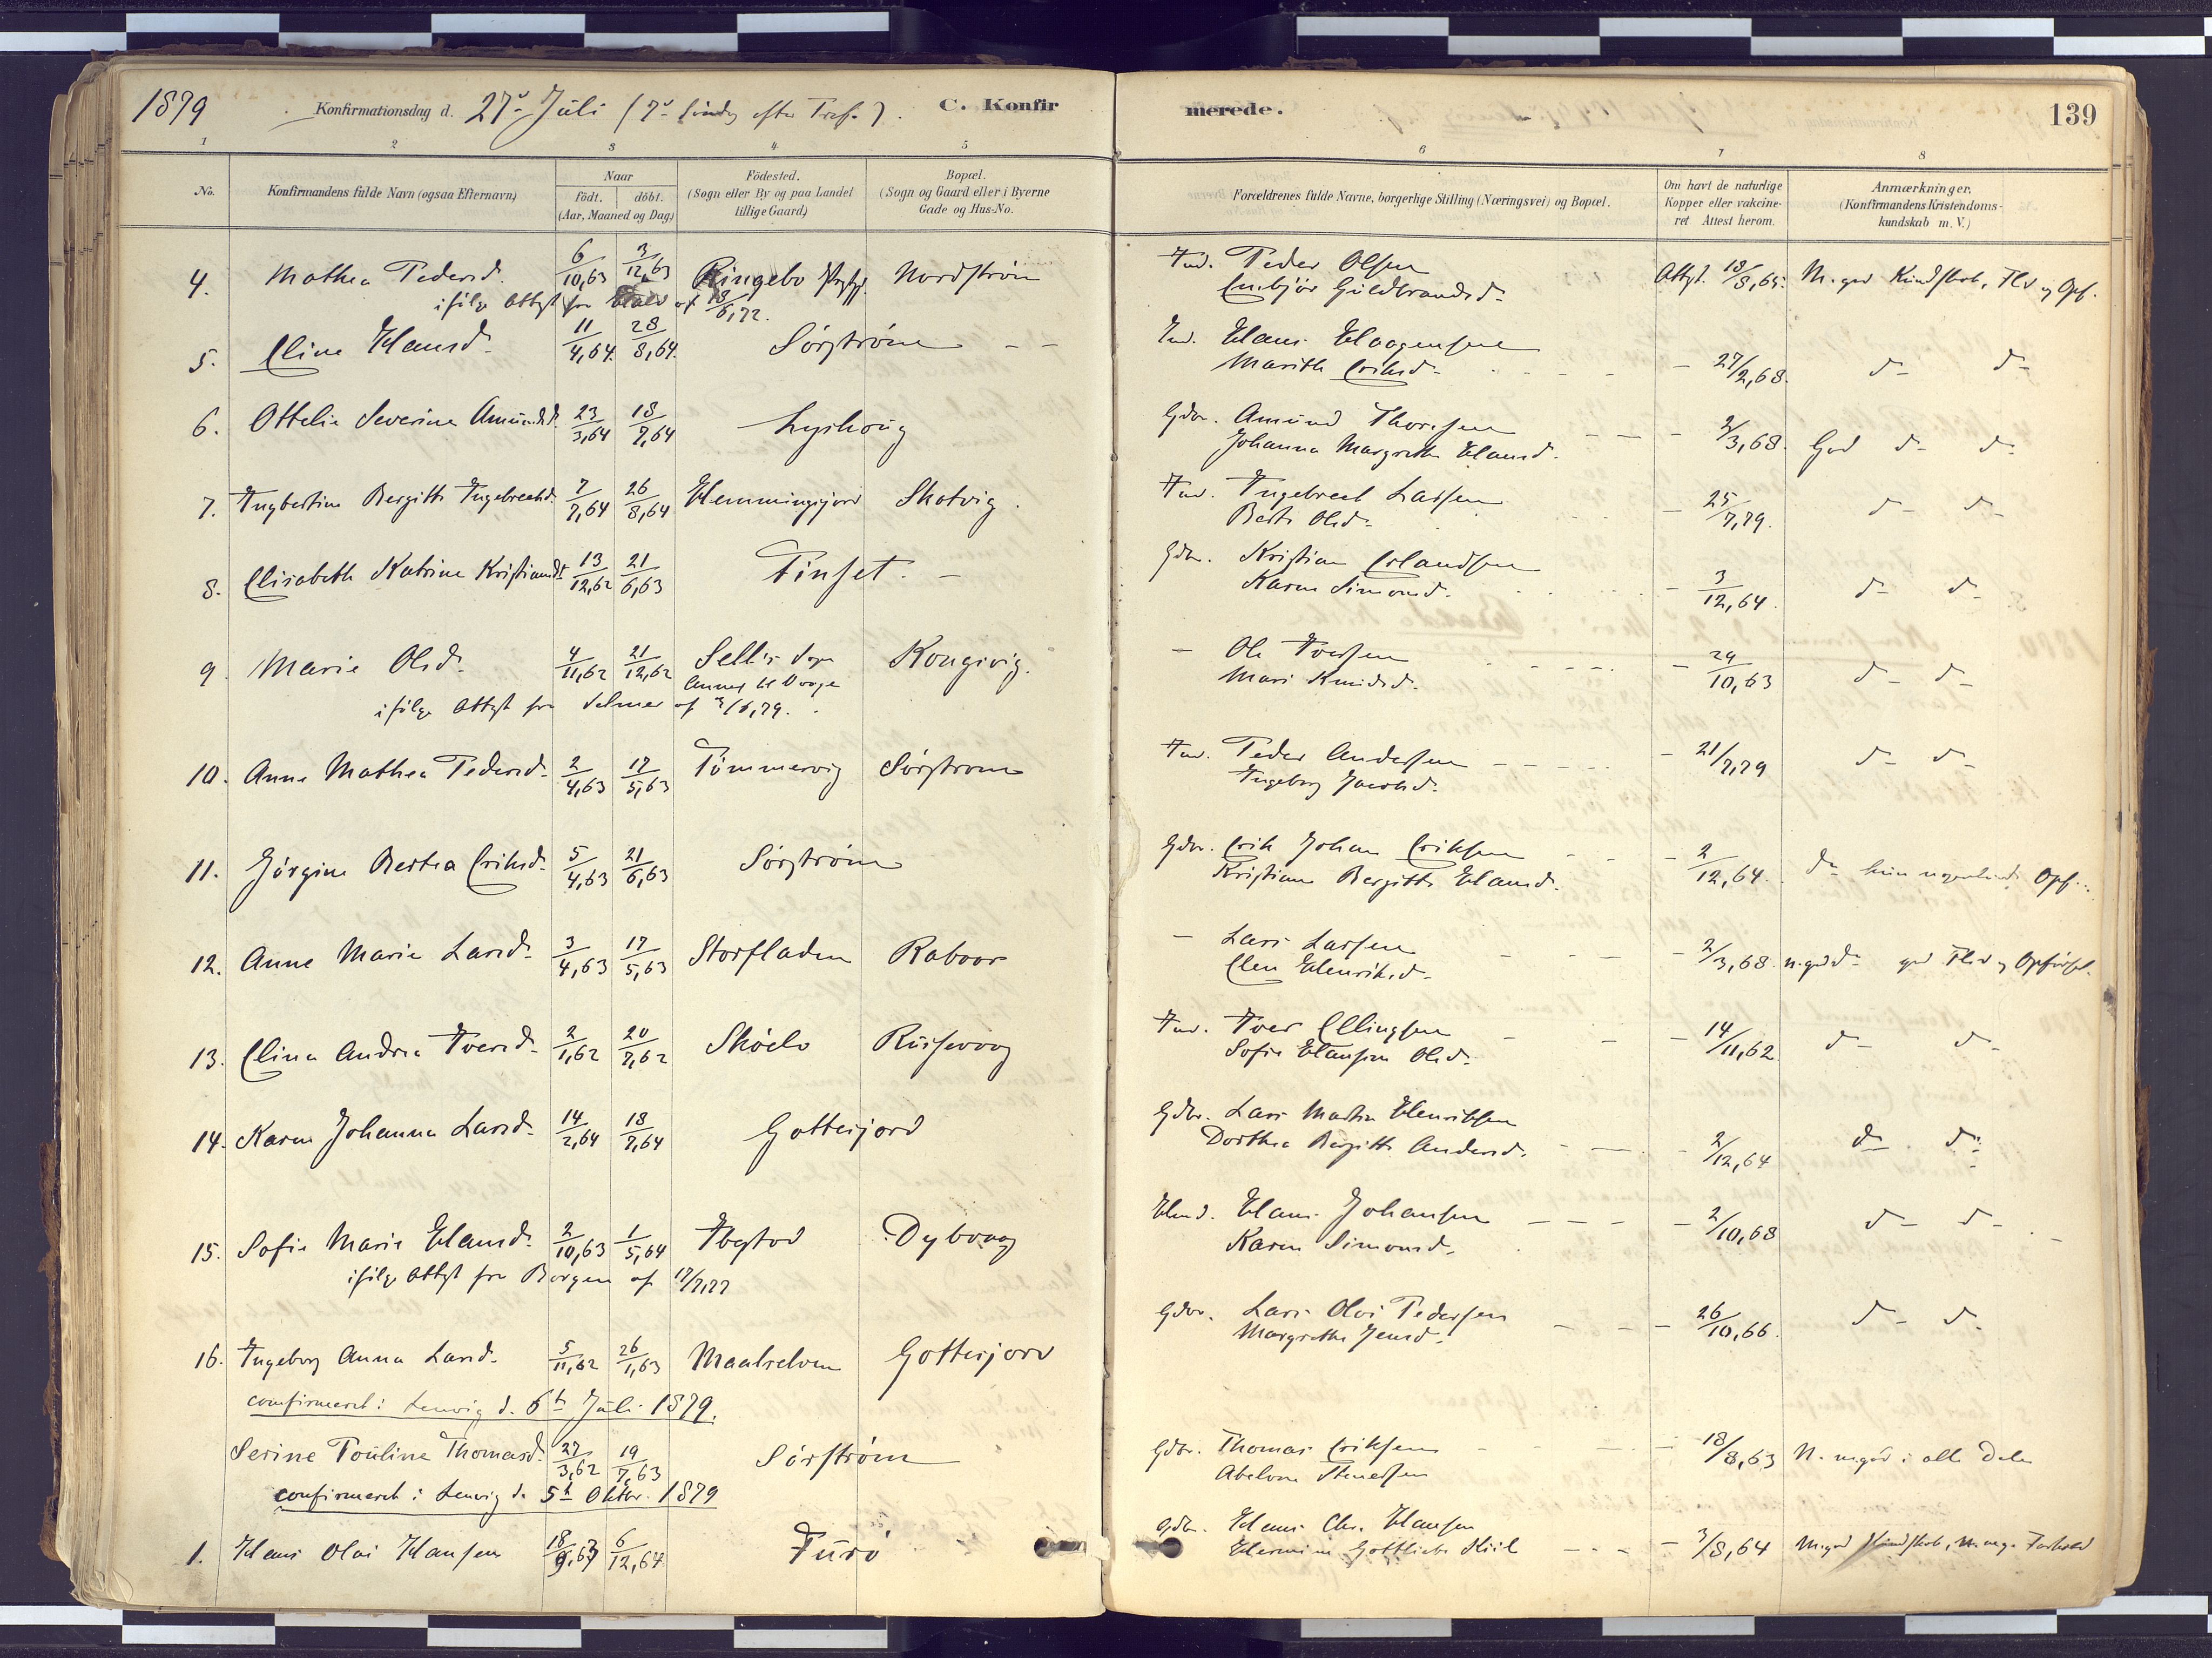 1879 Konfirmationsdag d. 27de Juli (7de Søndag efter Tref.). C. Konfirmerede. 139
1 2 3 4 5 6 7 8
No. Konfirmandens fulde Navn (ogsaa Efternavn) Naar født. døbt. (Aar, Maaned og Dag) Födested. (Sogn eller By og paa Landet tillige Gaard) Bopæl. (Sogn og Gaard eller i Byerne Gade og Hus-No.
Forældrenes fulde Navne, borgerlige Stilling (Næringsvei) og Bopæl. Om havt de naturlige Kopper eller vakcineret Attest herom. Anmærkninger. (Konfirmandens Kristendomskundskab m. V.)
4. Mathea Pedersd. 6/10,63 3/12,63 Ringebo Prgjd. Nordstrøm Ind. Peder Olsen Attest. 18/8,65. M. god Kundskab, Flid og Opf.
ifølge Attest fra af 18/6,72. Embjør Guldbrandsd.
5. Eline Hansd. 11/4,64. 28/8,64. Sørstrøm - - Ind. Hans Haagensen
Marith Eriksd. - 27/2,68. do do
6. Ottelie Severine Amundsd. 23/3,64 18/7,64 Lyshoug Gdbr. Amund Thoresen
Johanna Margrethe Hansd. - 2/3,68. God do do
7. Ingbertine Bergitte Ingebrechtsd. 7/7,64 26/8,64 Hemmingsjord Skotvig. Ind. Ingebrect Larsen
Berte Olsd. - 25/7,79. do do
8. Elisabeth Katrine Kristiansdt 13/12,62 21/6,63 Finset. - Gdbr. Kristian Erlandsen
Karen Simonsd. - 3/12,64. do do
9. Marie Olsd. 4/11,62 21/12,62 Sell's Sogn Kongsvig. - Ole Iversen
Annex til Vaage Mari Knudsd. - 29/10,63 do do
ifølge Attest fra Selmer af 2/6,79.
10. Anne Mathea Pedersd. 2/4,63 17/5,63 Tømmervig Sørstrøm Ind. Peder Andersen - 21/7,79 do do
Ingeborg Jacobsd.
11. Jørgine Bertea Eriksd. 5/4,63 21/6,63 Sørstrøm Gdbr. Erik Johan Eriksen
Kristiane Bergitte Hansd. - 2/12,64. do kun nogenlunde Opf.
12. Anne Marie Larsd. 3/4,63 17/5,63 Storfladen Raboor - Lars Larsen
Elen Henriksd. - 2/3,68. n. god do god Flid og Opførsel.
13. Elina Andrea Iversd. 2/1,62 20/7,62 Skøelv Russevaag Ind. Iver Ellingsen
Sofie Hansine Olsd. - 14/11,62. do do
14. Karen Johanna Larsd. 14/2,64 18/7,64 Gottesjord Gdbr. Lars Martin Henriksen
Dorthea Bergitte Andersd. - 2/12,64 do do
15. Sofie Marie Hansd. 2/10,63 1/5,64 Ibestad Dyvaag Hmd. Hans Johansen
Karen Simonsd. - 2/10,68 do do
ifølge Attest fra Borgen af 17/7,77
16. Ingeborg Anna Larsd. 5/11,62 26/1,63 Maalselven Gottesjord Gdbr. Lars Olai Pedersen
Margrethe Jensd. - 26/10,66. do do
confirmeret i Lenvig d. 6te Juli 1879.
Serine Pouline Thomasd. 27/3,62 19/7,63 Sørstrøm Gdbr. Thomas Eriksen
Abelone Stenersen - 18/8,63 N. m. god i alle Dele
confirmeret i Lenvig d. 5te Oktbr. 1879
1. Hans Olai Hansen 18/9,63 6/12,64. Furø Gdbr. Hans Chr. Hansen
Hermine Gottliebe Kiil - 3/8,64 M. god Kundskab, m. meg. Forhold